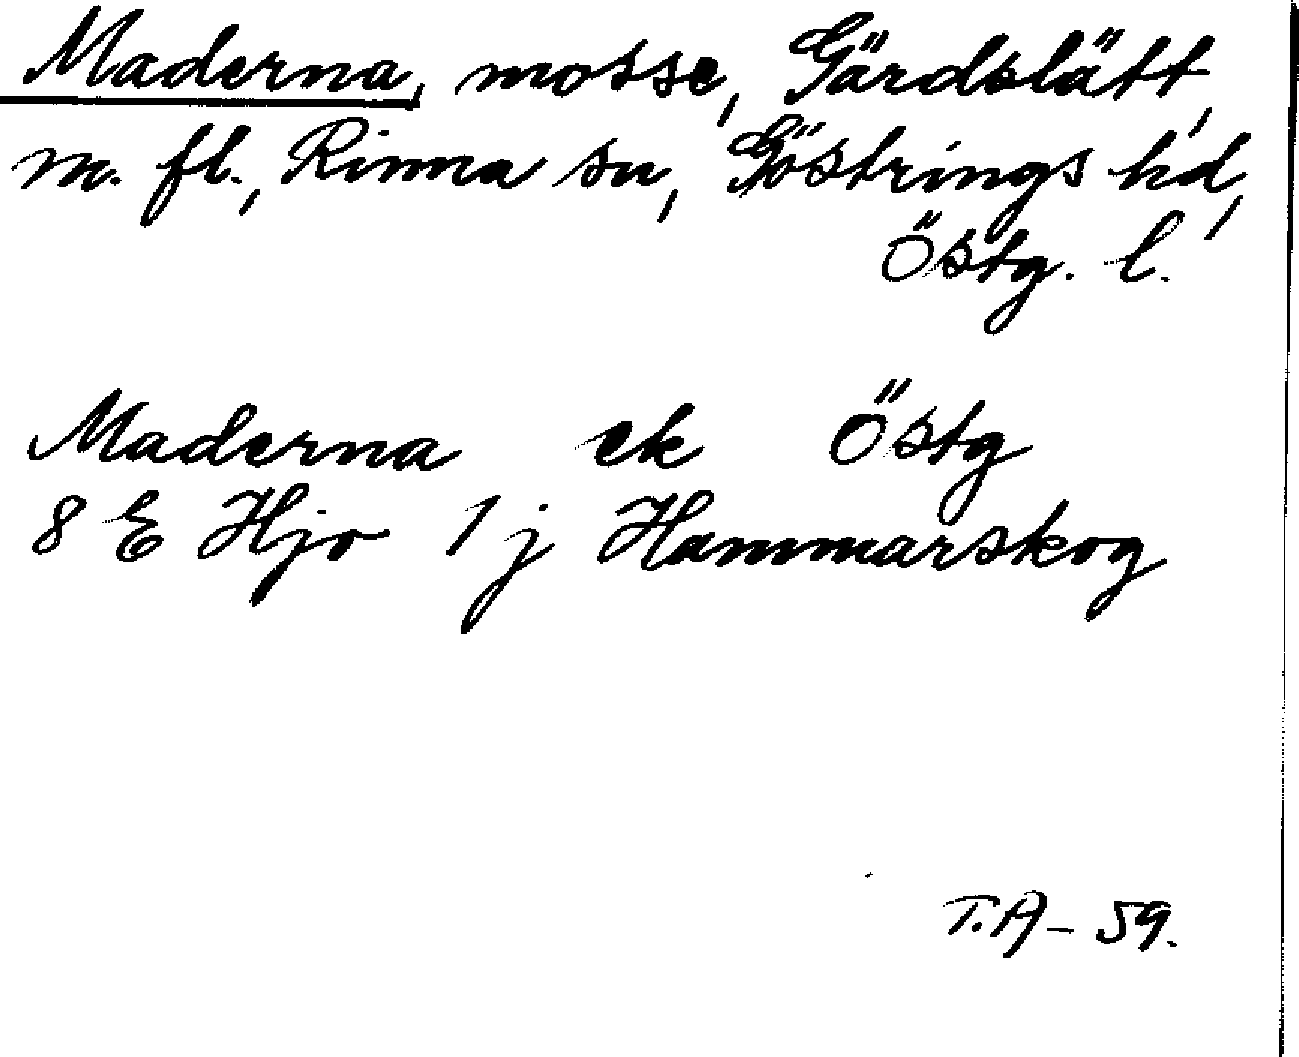 Maderna, mosse, Gärdslätt,
m. fl., Rinna sn, Göstrings hd,
Östg. l.
Maderna ek Östg
8 E Hjo 1 j Hammarskog
T.A - 59.